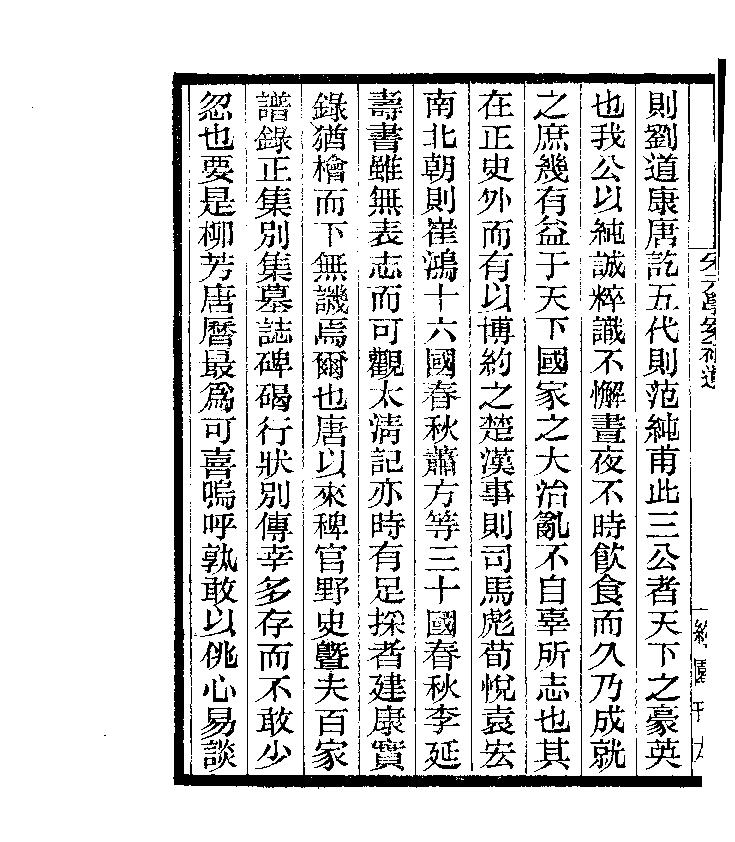 則劉道康唐訖五代則范純甫此三公者天下之豪英
也我公以純誠粹識不懈晝夜不時飲食而久乃成就
之庶幾有益于天下國家之大治亂不自辜所志也其
在正史外而有以博約之楚漢事則司馬彪荀悅袁宏
南北朝則崔鴻十六國春秋蕭方等三十國春秋李延
壽書雖無表志而可觀太淸記亦時有足採者建康實
錄猶檜而下無譏焉爾也唐以來稗官野史曁夫百家
譜錄正集別集墓誌碑碣行狀別傳幸多存而不敢少
忽也要是柳芳唐曆最爲可喜嗚呼孰敢以佻心易談